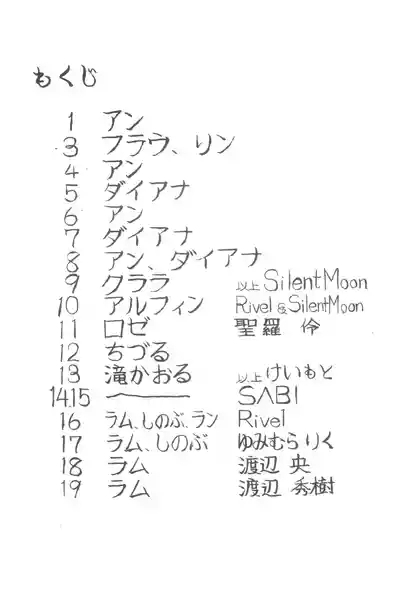 もくじ
1 アン
3 フラウ、リン
4 アン
5 ダイアナ
6 アン
7 ダイアナ
8 アン、ダイアナ
9 クララ 以上 SilentMoon
10 アルフィン Rivel & SilentMoon
11 ロゼ 聖羅 伶
12 ちづる
13 滝かおる 以上 けいもと
14.15 〜 SABI
16 ラム、しのぶ、ラン Rivel
17 ラム、しのぶ ゆみむらりく
18 ラム 渡辺 央
19 ラム 渡辺 秀樹